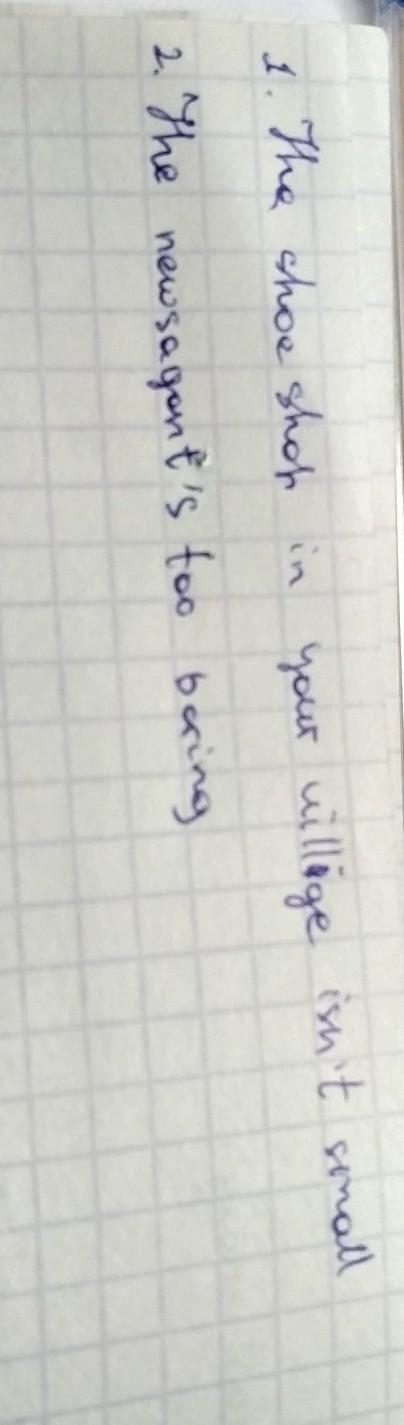 1. The shoe shop in your village isn't small
2. The newsagent's too boring